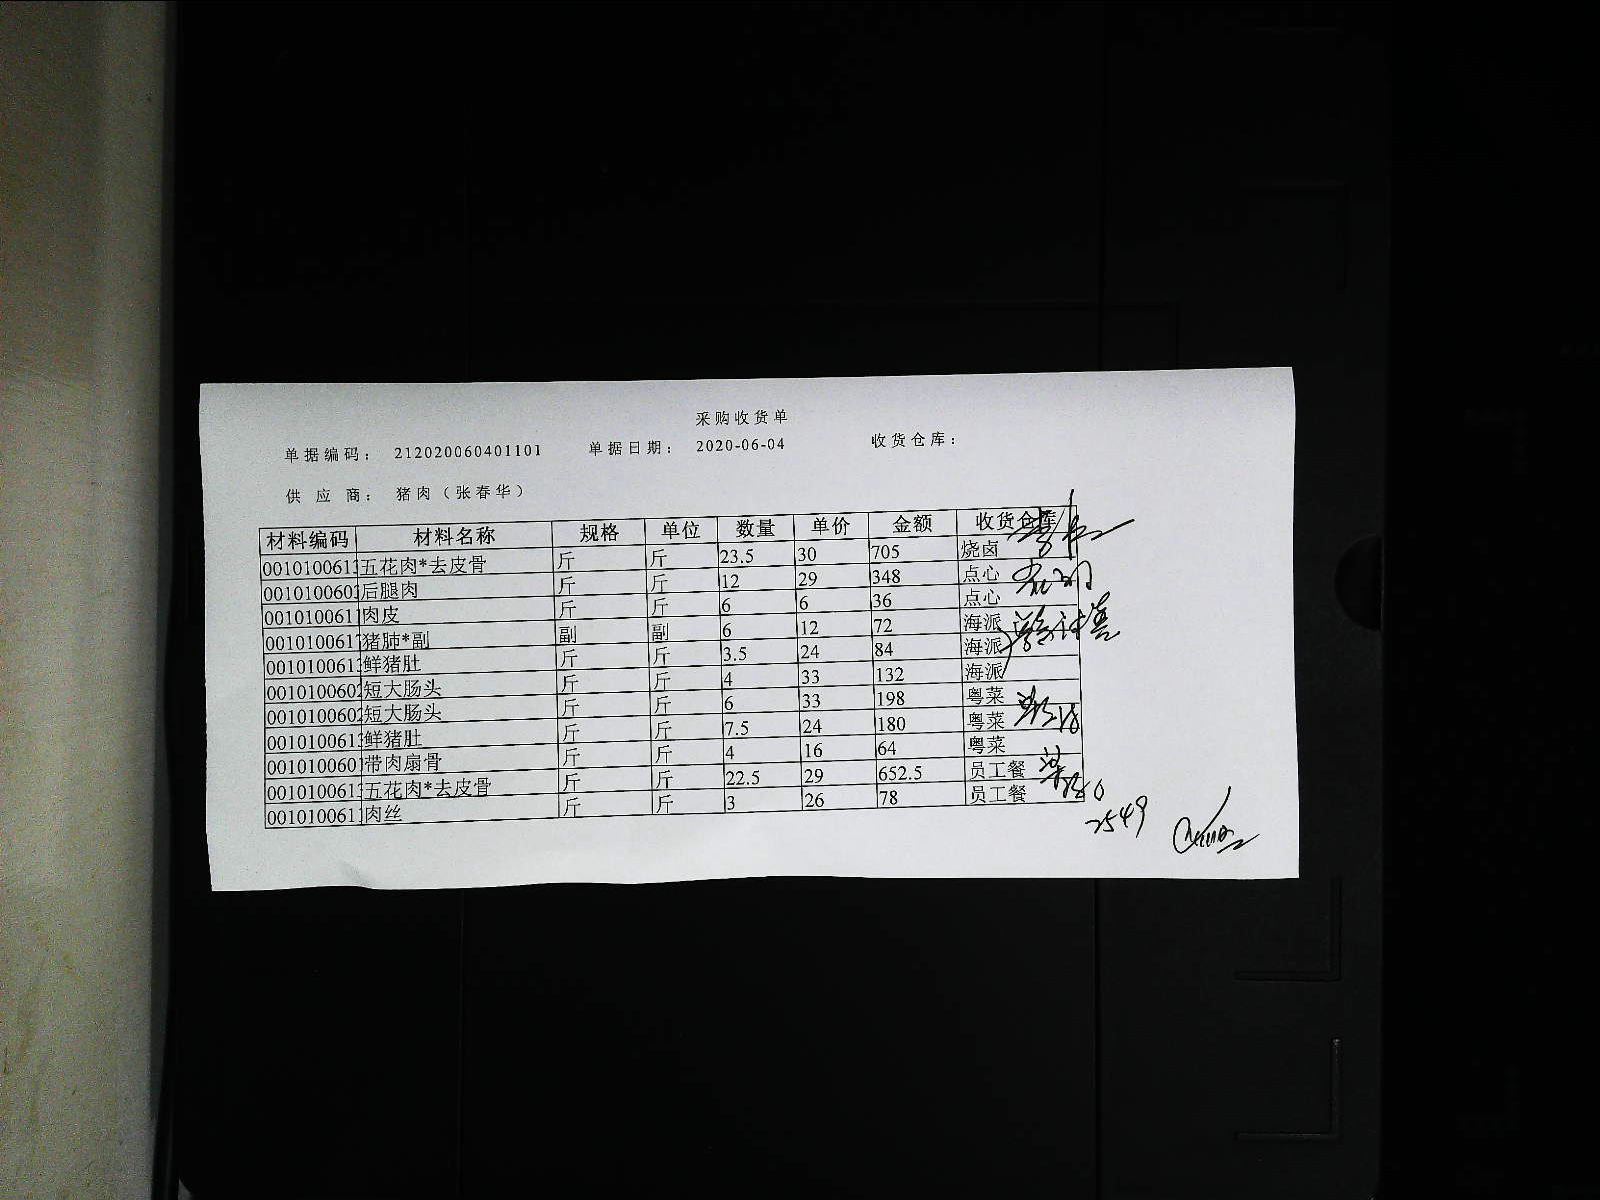 采购收货单
单据编码： 212020060401101 单据日期： 2020-06-04 收货仓库：
供应商： 猪肉（张春华）
材料编码 材料名称 规格 单位 数量 单价 金额 收货仓库
001010061 五花肉*去皮骨 斤 斤 23.5 30 705 烧卤
001010060 后腿肉 斤 斤 12 29 348 点心
001010061 肉皮 斤 斤 6 6 36 点心
001010061 猪肺*副 副 副 6 12 72 海派
001010061 鲜猪肚 斤 斤 3.5 24 84 海派
001010060 短大肠头 斤 斤 4 33 132 海派
001010060 短大肠头 斤 斤 6 33 198 粤菜
001010061 鲜猪肚 斤 斤 7.5 24 180 粤菜
001010060 带肉扇骨 斤 斤 4 16 64 粤菜
001010061 五花肉*去皮骨 斤 斤 22.5 29 652.5 员工餐
001010061 肉丝 斤 斤 3 26 78 员工餐
2549